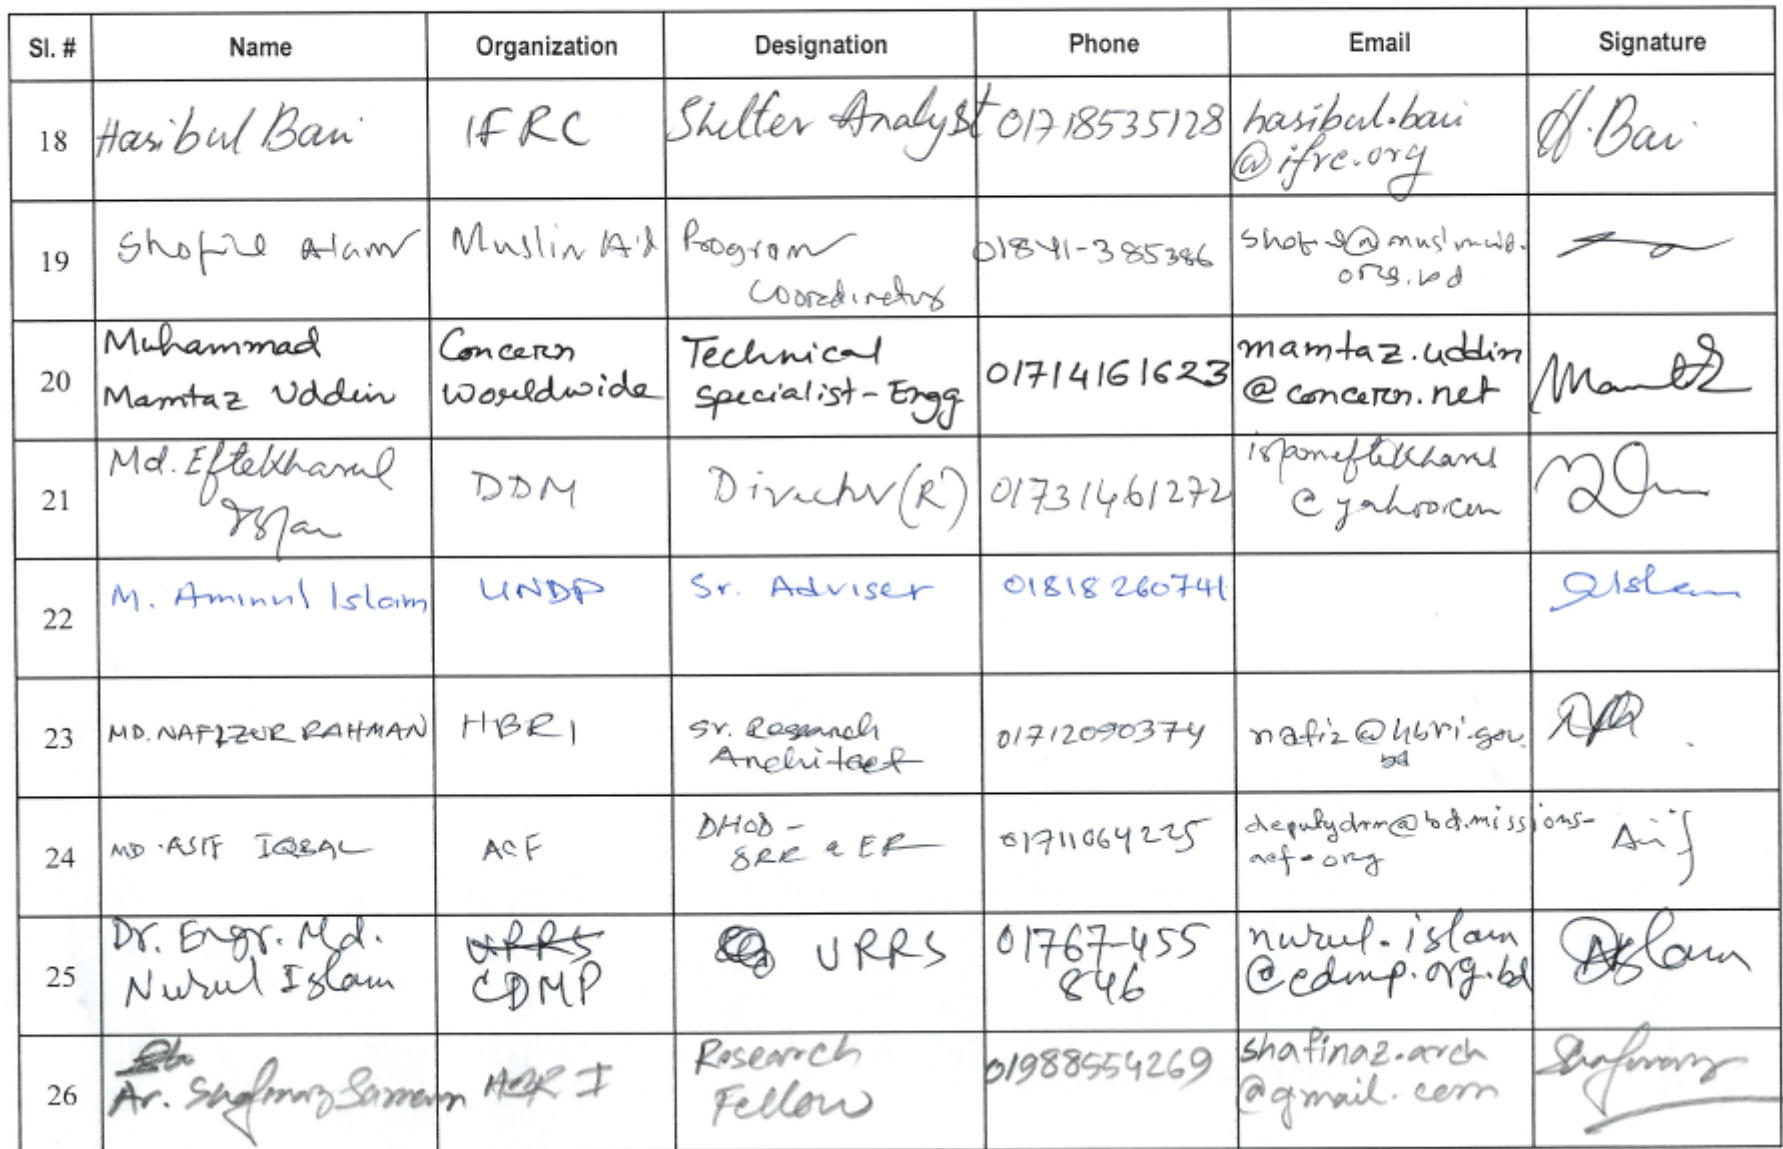 Sl. # Name Organization Designation Phone Email Signature
18 Hasibul Bari IFRC Shelter Analyst 01718535128 hasibul.bari
@ifrc.org
H. Bari
19 Alam Muslim Aid Program
Coordinator
01841-385386
org.bd
20 Muhammad
Mamtaz Uddin
Concern
Worldwide
Technical
Specialist-Engg
01714161623 mamtaz.uddin
@concern.net
21 Md. Eftekharul
DDM Director (R) 01731461272
@yahoo.com
22 M. Aminul Islam UNDP Sr. Adviser 01818 260741 Islam
23 MD. NAFIZUR RAHMAN HBRI Sr. Research
Architect
01712090374 nafiz@hbri.gov.
bd
24 MD. ASIF IQBAL ACF DHOD -
DRR & ER
01711064225 deputydrm@bd.missions-
acf.org
Asif
25 Dr. Engr. Md.
Nurul Islam
URRS
CDMP
URRS 01767-455
846
nurul.islam
@cdmp.org.bd
Islam
26 Ar. Shafinaz Sameen HBRI Research
Fellow
01988554269 shafinaz.arch
@gmail.com
Shafinaz